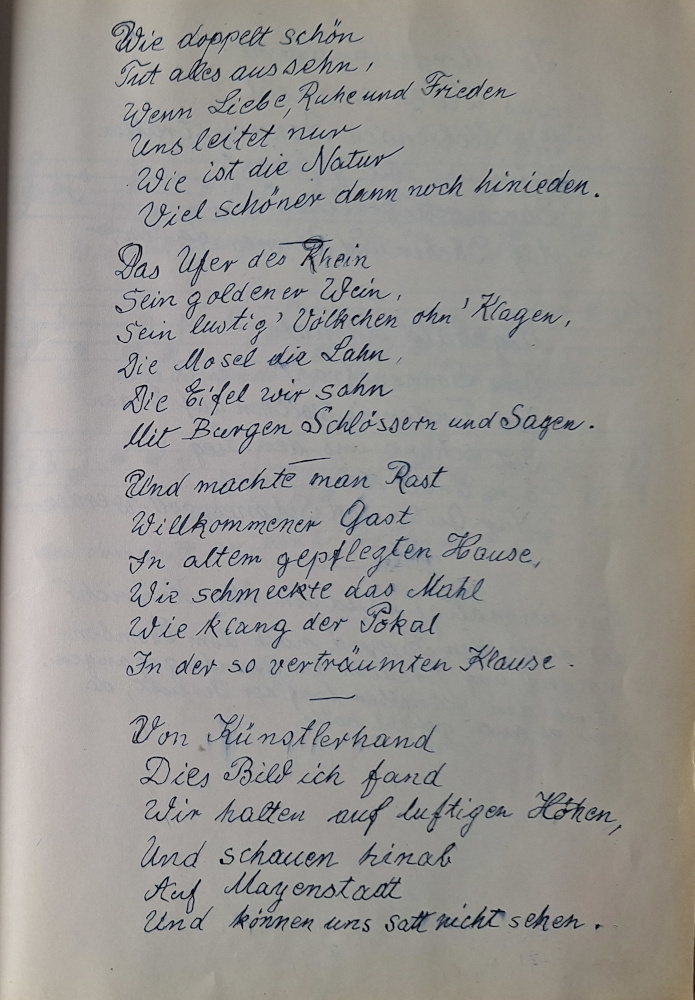 Wie doppelt schön
Tut alles aussehn,
Wenn Liebe, Ruhe und Frieden
Uns leitet nur
Wie ist die Natur
Viel schöner dann noch hinieden.
Das Ufer des Rhein
Sein goldener Wein,
Sein lustig' Völkchen ohn' Klagen,
Die Mosel die Lahn,
Die Eifel wir sahn
Mit Burgen Schlössern und Sagen.
Und machte man Rast
Willkommener Gast
In altem gepflegten Hause,
Wie schmeckte das Mahl
Wie klang der Pokal
In der so verträumten Klause.
Von Künstlerhand
Dies Bild ich fand
Wir halten auf luftigen Höhen,
Und schauen hinab
Auf Mayenstadt
Und können uns satt nicht sehen.